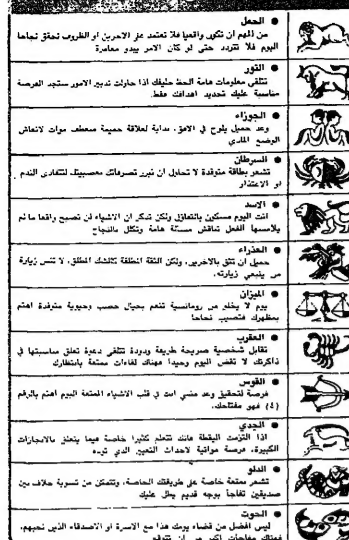 ● الحمل
من المهم ان تكون واقعيا فلا تعتمد على الاخرين او الظروف تحقق نجاحا
اليوم فلا تتردد حتى لو كان الامر يبدو مغامرة
● الثور
تتلقى معلومات هامة الحظ حليفك اذا حاولت تدبير الامور ستجد الفرصة
مناسبة عليك تحديد اهدافك فقط.
● الجوزاء
وعد جميل يلوح في الافق، بداية لعلاقة حميمة منعطف موات لانعاش
الوضع المادي
● السرطان
تشعر بطاقة متوقدة لا تحاول ان تبرر تصرفاتك بعصبيتك لتتفادى الندم
او الاعتذار
● الاسد
انت اليوم مسكون بالتفاؤل ولكن تذكر ان الاشياء لن تصبح واقعا ما لم
يلامسها الفعل تناقش مسئلة هامة وتكلل بالنجاح
● العذراء
جميل ان تثق بالاخرين، ولكن الثقة المطلقة كالشك المطلق، لا تنس زيارة
من ينبغي زيارته.
● الميزان
يوم لا يخلو من رومانسية تنعم بخيال خصب وحيوية متوقدة اهتم
بمظهرك فتصيب نجاحا
● العقرب
تقابل شخصية صريحة طريفة ودودة تتلقى دعوة تعلق مناسبتها في
ذاكرتك لا تقض اليوم وحيدا فهناك لقاءات ممتعة بانتظارك
● القوس
فرصة لتحقيق وعد مضى انت في قلب الاشياء الممتعة اليوم اهتم بالرقم
(٤) فهو مفتاحك.
● الجدي
اذا التزمت اليقظة فانك تتعلم كثيرا خاصة فيما يتعلق بالانجازات
الكبيرة، فرصة مواتية لاحداث التغيير الذي توده
● الدلو
تشعر بمتعة خاصة على طريقتك الخاصة، وتتمكن من تسوية خلاف بين
صديقين تفاجأ بوجه قديم يطل عليك
● الحوت
ليس افضل من قضاء يومك هذا مع الاسرة او الاصدقاء الذين تحبهم،
فهناك مفاجآت اكثر من ان تتوقع